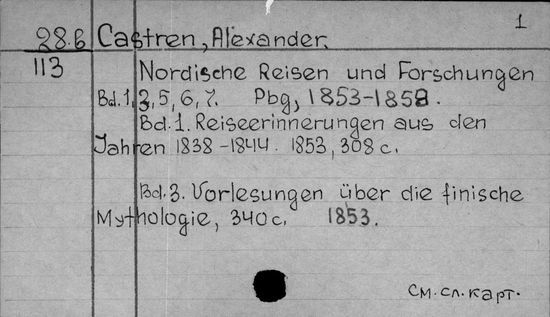 1
28.б Castren, Alexander.
113 Nordische Reisen und Forschungen
Bd.1,3,5,6,7. Pbg, 1853-1858.
Bd.1. Reiseerinnerungen aus den
Jahren 1838-1844. 1853, 308 c.
Bd.3. Vorlesungen über die finische
Mythologie, 340 c. 1853.
См. сл. карт.